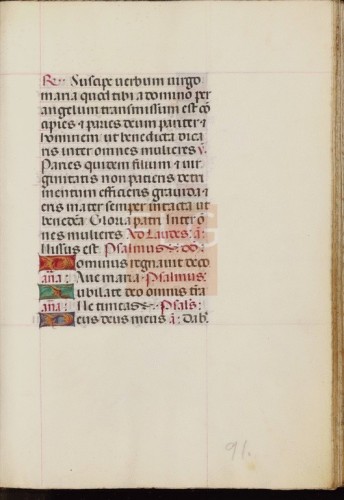 R. Suscipe uerbum uirgo
maria quod tibi a domino per
angelum transmissum est cō
cipies ⁊ paries deum pariter ⁊
hominem ut benedicta dica
ris inter omnes mulieres ℣.
Paries quidem filium ⁊ uir
ginitatis non patieris detri
mentum efficieris grauida ⁊
eris mater semper intacta ut
benedcā Gloria patri Inter ō
nes mulieres Ad Laudes: ā:
Missus est Psalmus
Dominus regnauit deco
aña: Aue maria Psalmus:
Iubilate deo omnis t̄ra
aña: Ne timeas Psals:
Deus deus meus ā: Dab̄
91.